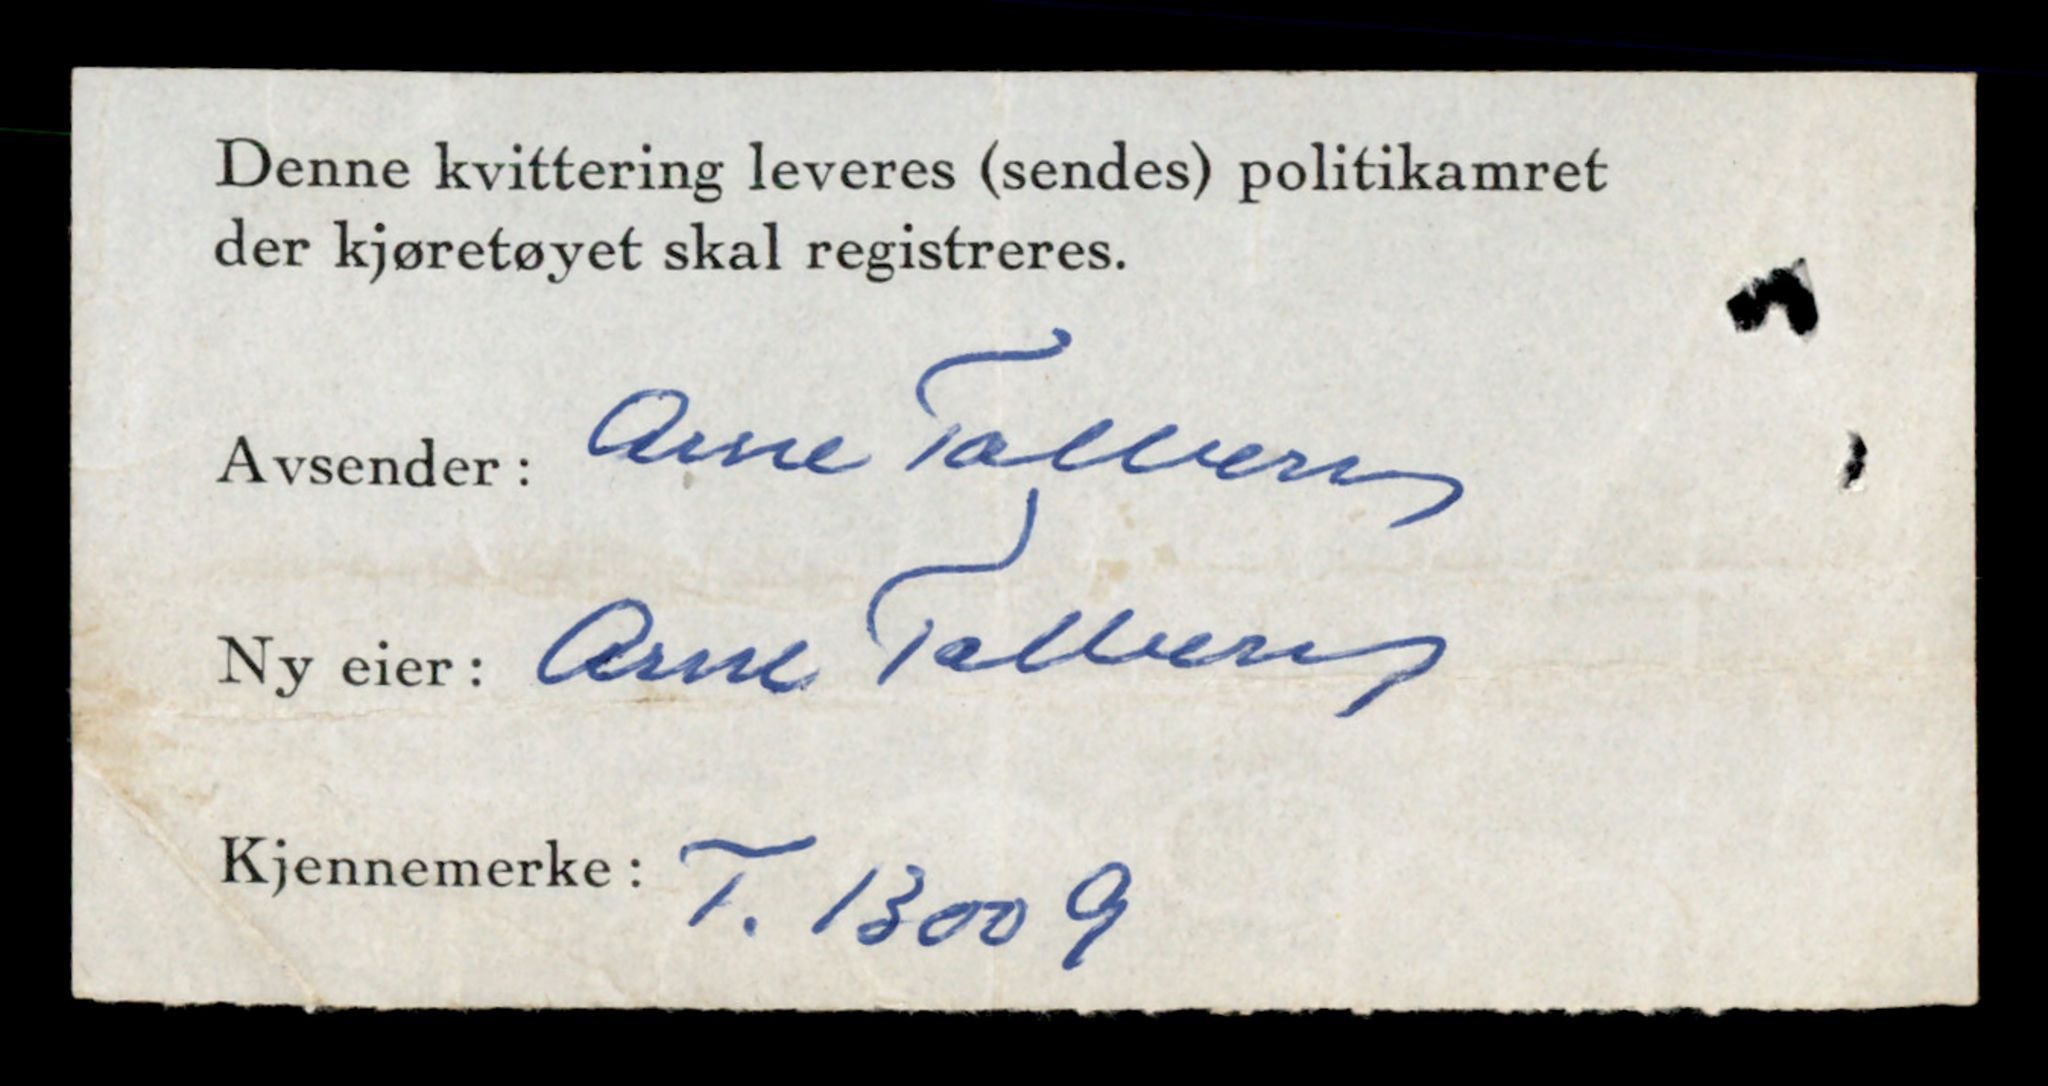 Denne kvittering leveres (sendes) politikamret
der kjøretøyet skal registreres.
Avsender: Arne Talberg
Ny eier: Arne Talberg
Kjennemerke: T. 13009